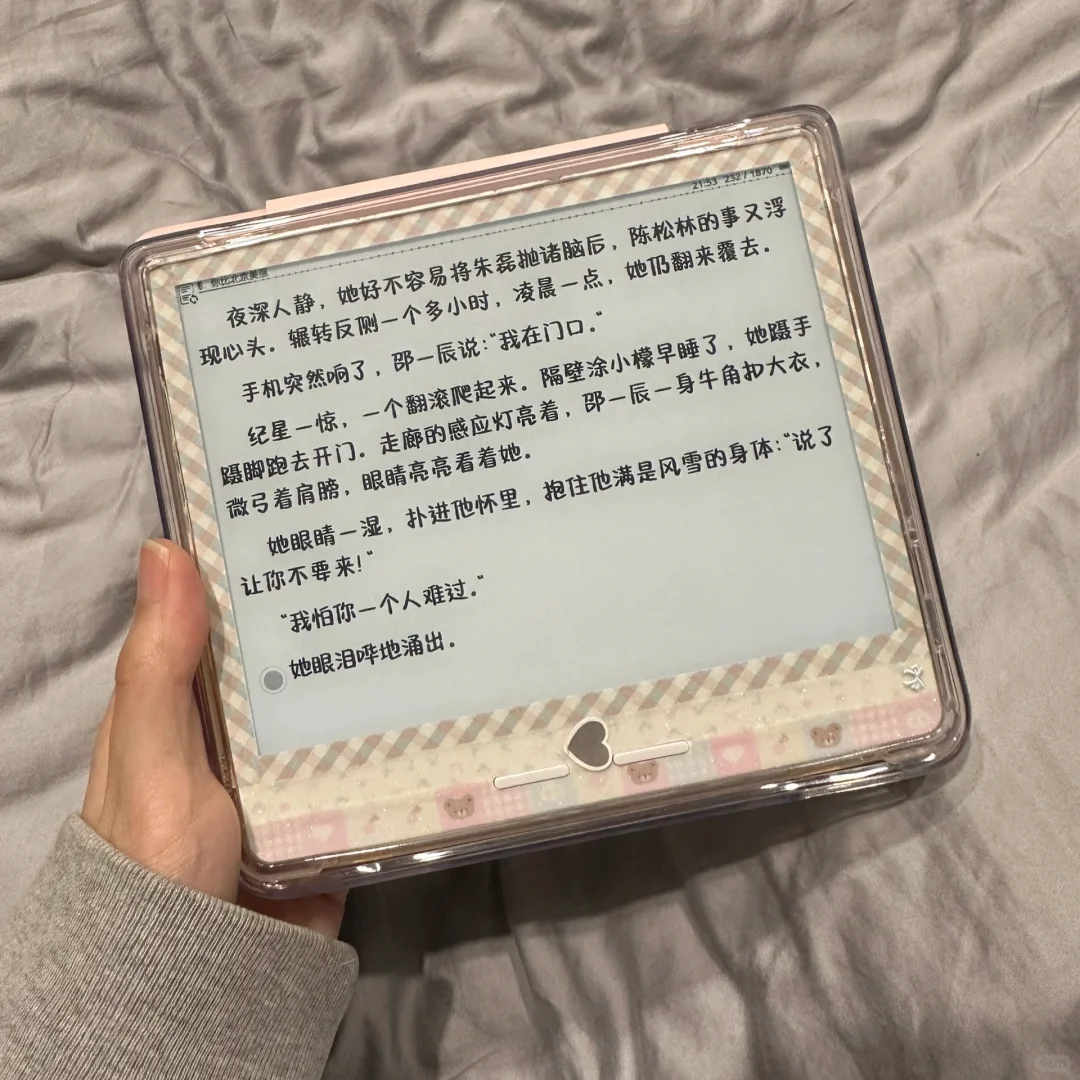 21:53 232 / 1870
你比北京美丽
夜深人静，她好不容易将朱磊抛诸脑后，陈松林的事又浮
现心头。辗转反侧一个多小时，凌晨一点，她仍翻来覆去。
手机突然响了，邵一辰说：“我在门口。”
纪星一惊，一个翻滚爬起来。隔壁涂小檬早睡了，她蹑手
蹑脚跑去开门。走廊的感应灯亮着，邵一辰一身牛角扣大衣，
微弓着肩膀，眼睛亮亮看着她。
她眼睛一湿，扑进他怀里，抱住他满是风雪的身体：“说了
让你不要来！”
“我怕你一个人难过。”
她眼泪哗地涌出。